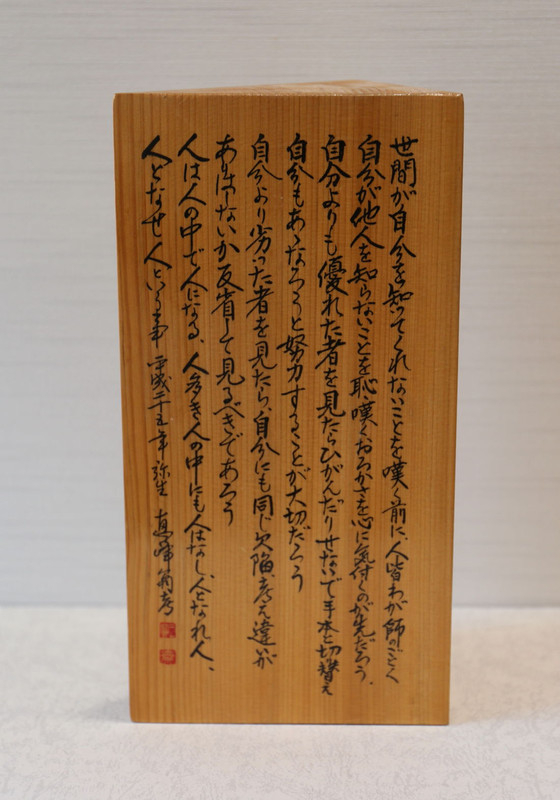 世間が自分を知ってくれないことを嘆く前に、人皆わが師のごとく
自分が他人を知らないことを恥、嘆くおろかさを心に気付くのが先だろう、
自分よりも優れた者を見たらひがんだりせないで手本と切替え
自分もあゝなろうと努力することが大切だろう
自分より劣った者を見たら、自分にも同じ欠陥、考え違いが
ありはしないか反省して見るべきであろう
人は人の中で人になる、人多き人の中にも人はなし、人となれ人、
人となせ人という事 平成二十五年 弥生